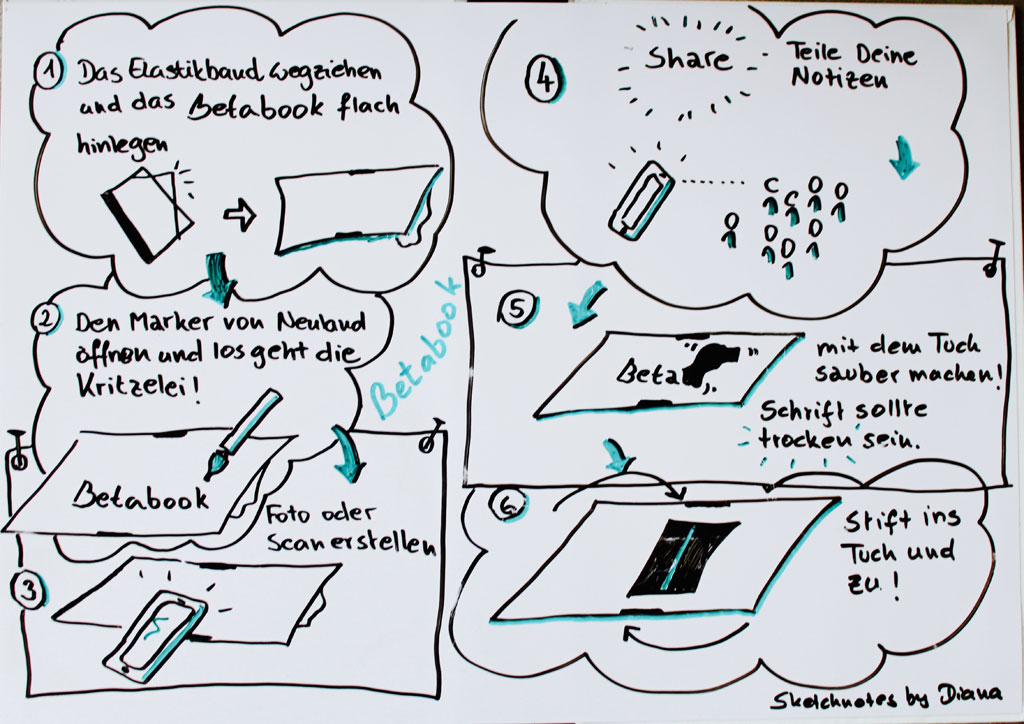 1
Das Elastikband wegziehen
und das Betabook flach
hinlegen
2
Den Marker von Neuland
öffnen und los geht die
Kritzelei!
Betabook
Betabook
3
Foto oder
Scan erstellen
4
Share
Teile Deine
Notizen
5
Beta
mit dem Tuch
sauber machen!
Schrift sollte
trocken sein.
6
Stift ins
Tuch und
zu!
Sketchnotes by Diana